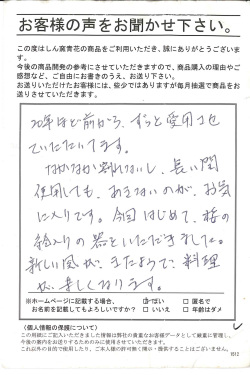 お客様の声をお聞かせ下さい。
この度はしん窯青花の商品をご利用いただき、誠にありがとうございます。
今後の商品開発の参考にさせていただきますので、商品購入の理由やご感想など、ご自由にお書きのうえ、お送り下さい。
お送りいただけたお客様には、些少ではありますが毎月抽選で商品をお送りさせていただきます。
20年ほど前から、ずっと愛用させ
ていただいてます。
なかなか割れないし、長い間
使用しても、あきないのが、お気
に入りです。今回はじめて、桜の
絵入りの器をいただきました。
新しい風が、またようで、料理
が、楽しくなります。
※ホームページに記載する場合、
お名前を記載してもよろしいですか？
はい □匿名で
□いいえ □年齢はダメ
（個人情報の保護について）
この用紙にご記入いただきました情報は弊社の貴重なお客様データとして厳重に管理し、
今後の案内をお送りするためのみに使用させていただきます。
これ以外の目的で使用したり、ご本人様の許可無く開示・提供することはございません。